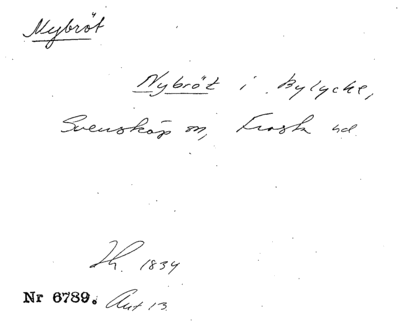 Nybröt
Nybröt i Bylycke,
Svensköp sn, Frosta hd.
Lh. 1834
Nr 6789. Akt 13